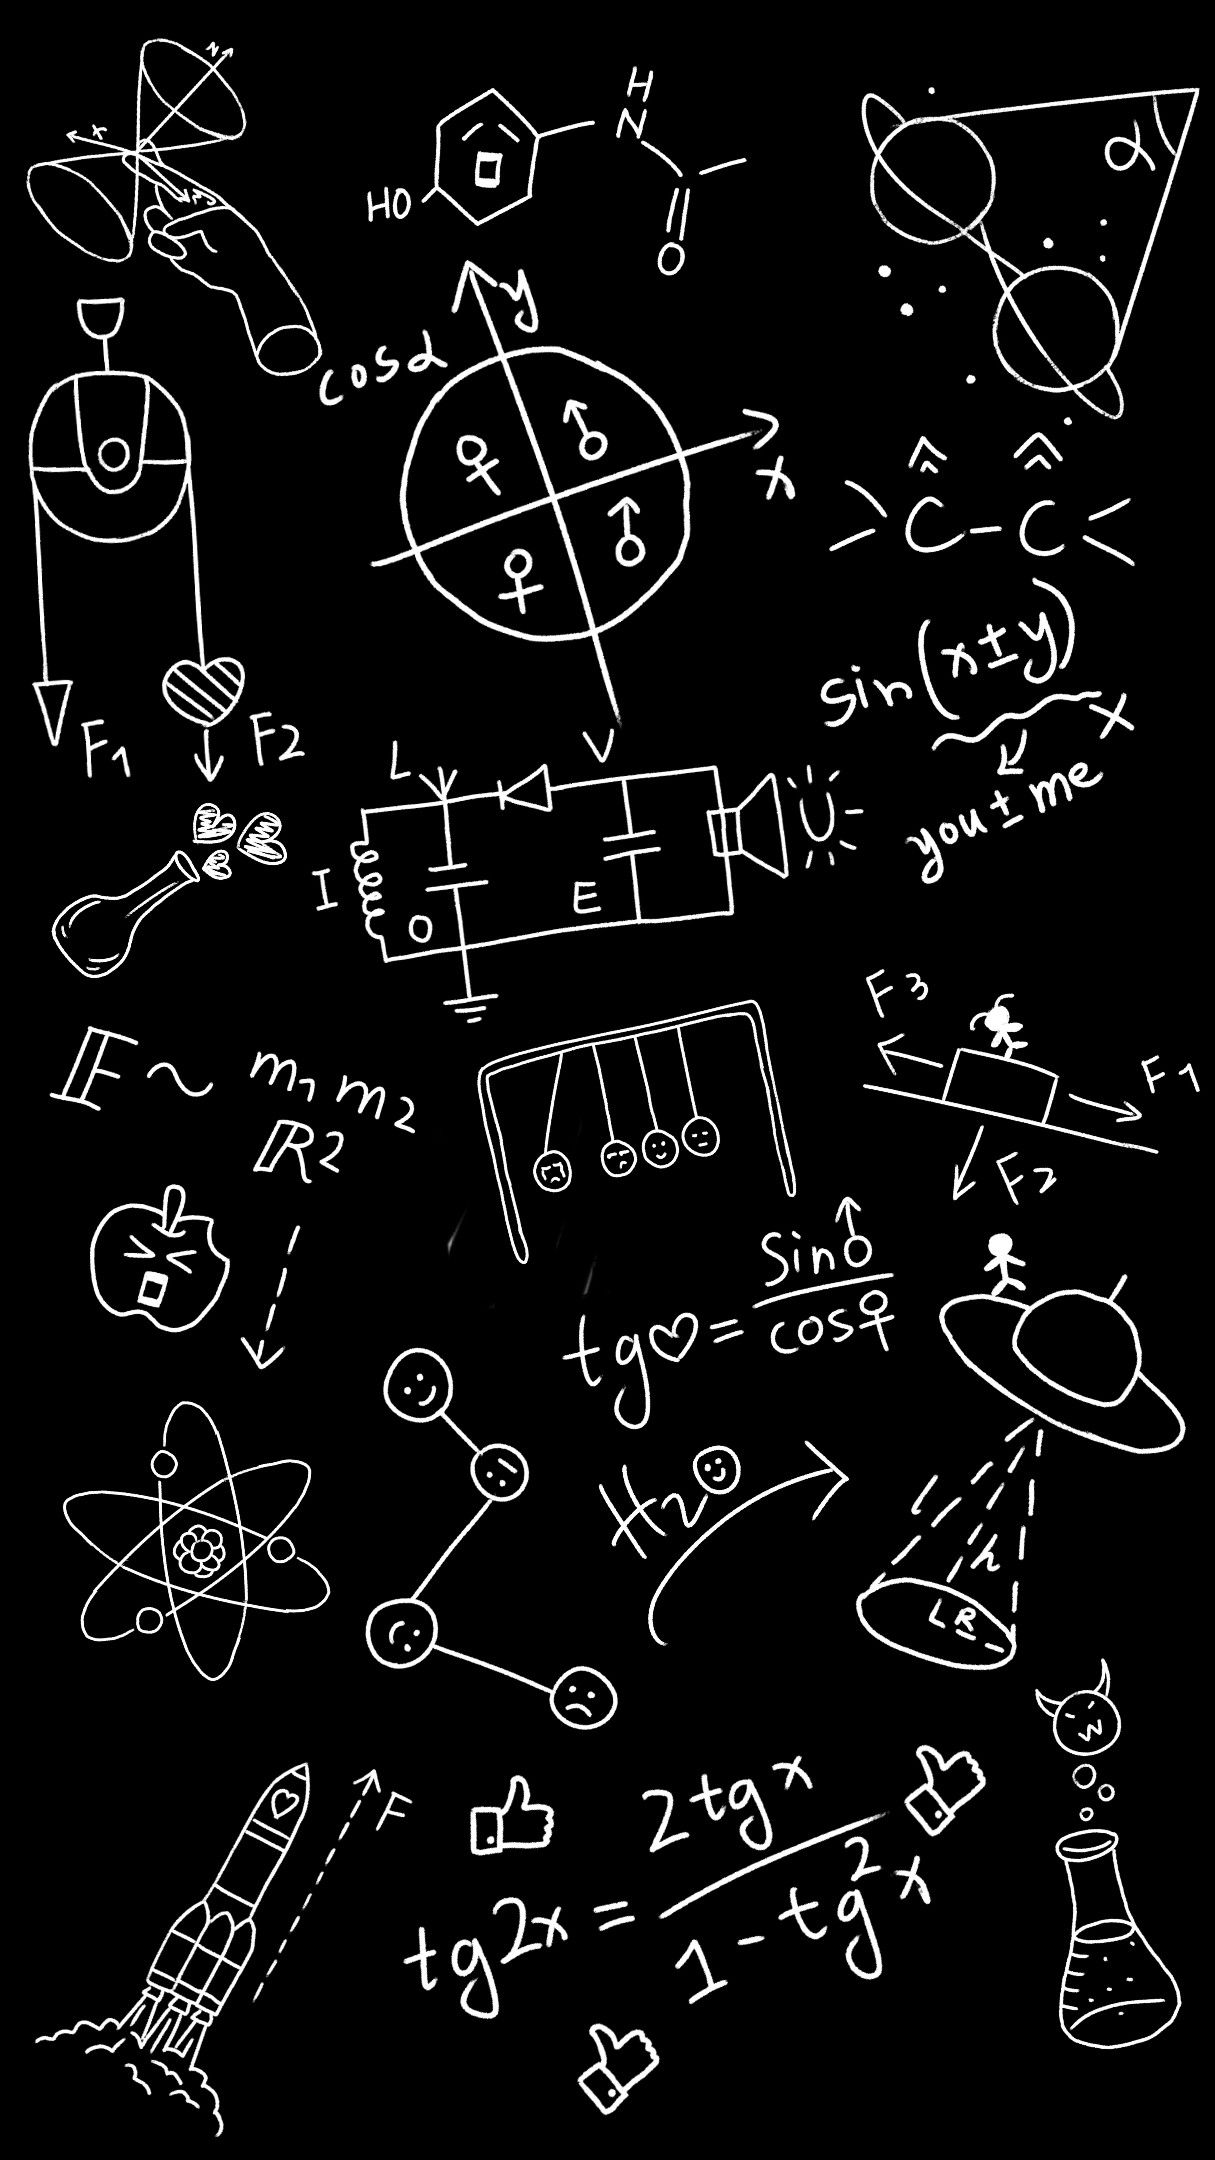 z
x
y
H
N
HO
O
α
y
cosα
x
C - C
F1
F2
sin(x±y)
x
you ± me
L
V
I
O
E
U
F3
F1
F2
F ~ m1 m2
R2
tg♡ = sin♂
cos♀
H2O
l
h
L R
F
tg2x = 2tgx
1 - tg²x